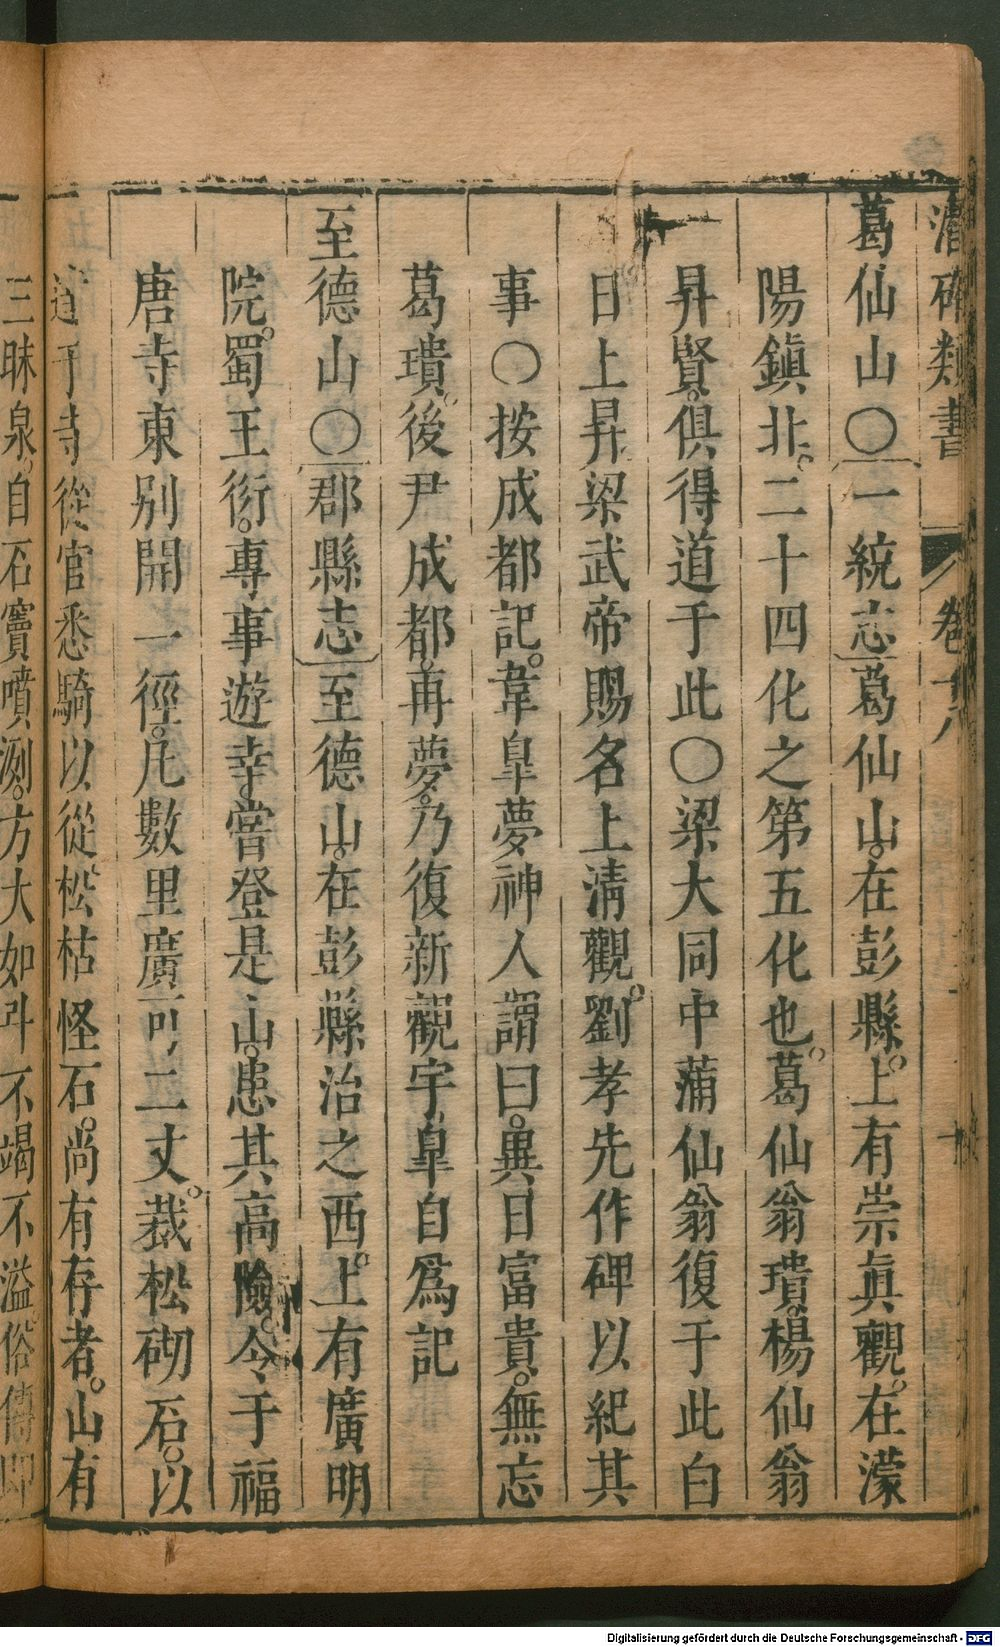 潛確類書 卷十八 十
葛仙山〇一統志葛仙山。在彭縣。上有崇眞觀。在濛
陽鎭北。二十四化之第五化也。葛仙翁璝。楊仙翁
昇賢。俱得道于此〇梁大同中蒲仙翁復于此白
日上昇梁武帝賜名上淸觀。劉孝先作碑以紀其
事〇按成都記。韋皐夢神人謂曰。異日富貴。無忘
葛璝。後尹成都。再夢。乃復新觀宇皐自爲記
至德山〇郡縣志至德山。在彭縣治之西。上有廣明
院。蜀王衍。專事遊幸嘗登是山。患其高險。令于福
唐寺東別開一徑。凡數里廣可二丈。栽松砌石。以
達于寺從官悉騎以從松枯怪石。尚有存者。山有
三昧泉。自石竇噴洌。方大如斗不竭不溢。俗傳卽
Digitalisierung gefördert durch die Deutsche Forschungsgemeinschaft - DFG